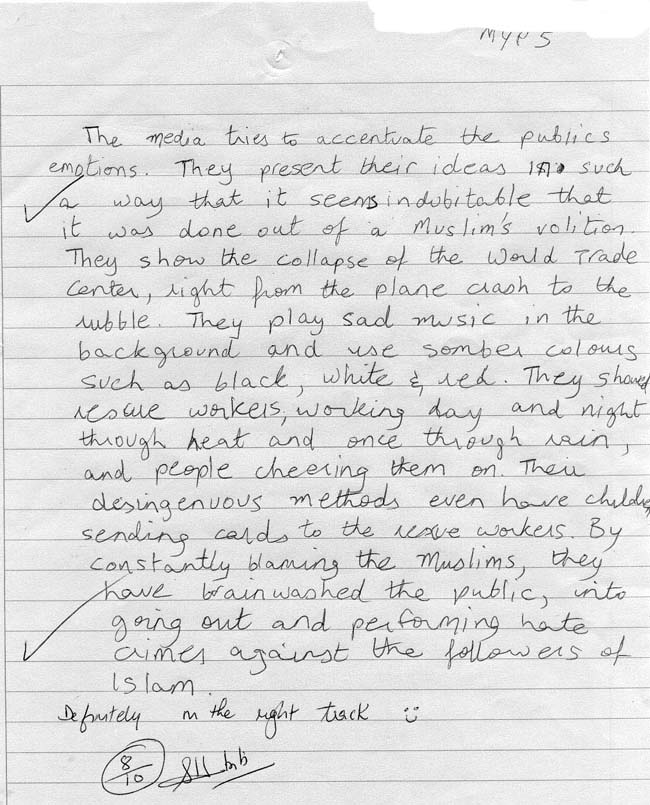 MYP 5
The media tries to accentuate the publics
emotions. They present their ideas in such
a way that it seems indubitable that
it was done out of a Muslim's volition.
They show the collapse of the World Trade
Center, right from the plane crash to the
rubble. They play sad music in the
background and use somber colours
such as black, white & red. They showed
rescue workers, working day and night
through heat and once through rain,
and people cheering them on. Their
desingenuous methods even have children
sending cards to the rescue workers. By
constantly blaming the Muslims, they
have brainwashed the public, into
going out and performing hate
crimes against the followers of
Islam.
Definitely on the right track
8/10